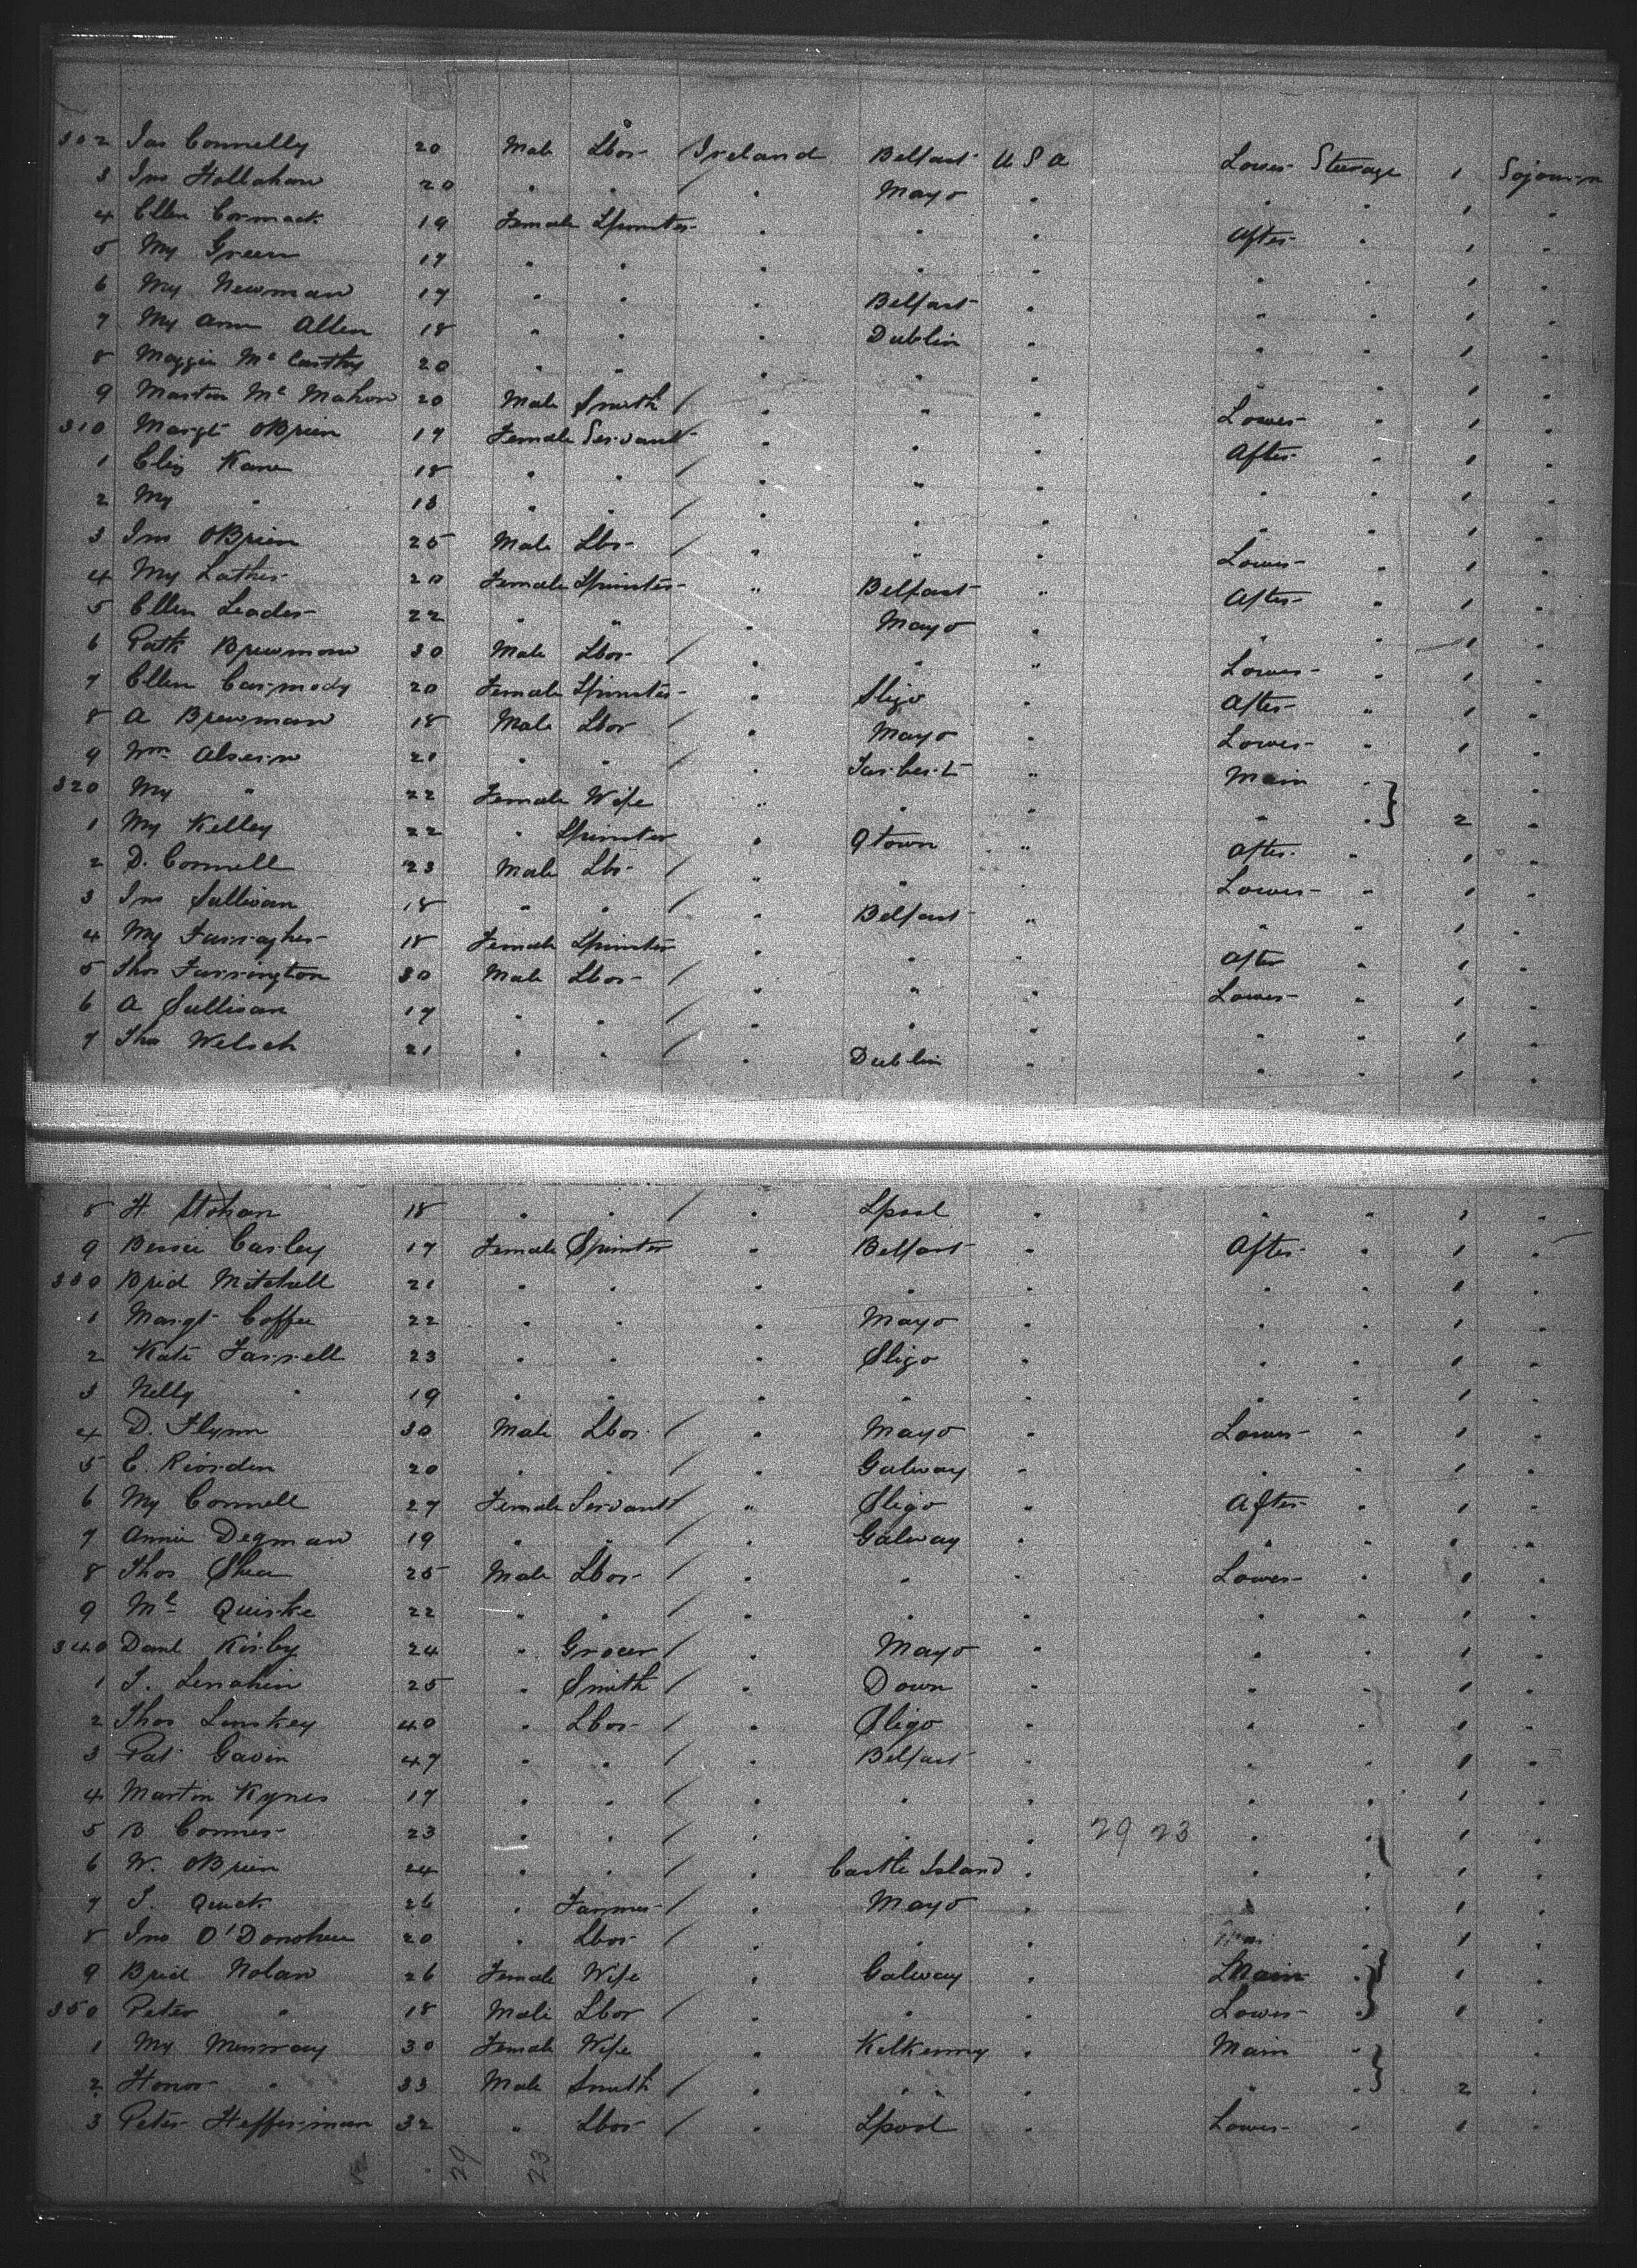 302 Jas Connelly 20 Male Lbor Ireland Belfast U S A Lower Steerage 1 Sojourn
3 Jno Hollahan 20 " " / " Mayo " " " 1 "
4 Ellen Cormack 19 Female Spinster " " " After " 1 "
5 My Green 17 " " " " " " " 1 "
6 My Newman 17 " " " Belfast " " " 1 "
7 My Ann Allen 18 " " " Dublin " " " 1 "
8 Maggie McCarthy 20 " " " " " " " 1 "
9 Martin McMahon 20 Male Smith / " " " Lower " 1 "
310 Margt OBrien 17 Female Servant " " " After " 1 "
1 Eliz Kane 18 " " / " " " " " 1 "
2 My " 18 " " / " " " " " 1 "
3 Jno OBrien 25 Male Lbr / " " " Lower " 1 "
4 My Lather 20 Female Spinster " Belfast " After " 1 "
5 Ellen Leader 22 " " " Mayo " " " 1 "
6 Patk Brewman 30 Male Lbor / " " " Lower " 1 "
7 Ellen Carmody 20 Female Spinster " Sligo " After " 1 "
8 A Brewman 18 Male Lbor / " Mayo " Lower " 1 "
9 Wm 21 " " / " Tarbert " Main " "
320 My " 22 Female Wife " " " " " } 2 "
1 My Kelley 22 " Spinster " Qtown " After " 1 "
2 D. Connell 23 Male Lbr / " " " Lower " 1 "
3 Jno Sullivan 18 " " / " Belfast " " " 1 "
4 My Farragher 18 Female Spinster " " " After " 1 "
5 Thos Farrington 30 Male Lbor / " " " Lower " 1 "
6 A Sullivan 17 " " / " " " " " 1 "
7 Thos Welsch 21 " " / " Dublin " " " 1 "
8 H 18 " " / " Lpool " " " 1 "
9 Bessie Carley 17 Female Spinster " Belfast " After " 1 "
330 Brid Mitchell 21 " " " " " " " 1 "
1 Margt Coffee 22 " " " Mayo " " " 1 "
2 Kate Farrell 23 " " " Sligo " " " 1 "
3 Nelly " 19 " " " " " " " 1 "
4 D. Flynn 30 Male Lbor / " Mayo " Lower " 1 "
5 C. Riorden 20 " " / " Galway " " " 1 "
6 My Connell 27 Female Servant / " Sligo " After " 1 "
7 Annie Degman 19 " " / " Galway " " " 1 "
8 Thos Shea 25 Male Lbor / " " " Lower " 1 "
9 Ml Quirke 22 " " / " " " " " 1 "
340 Danl Kirby 24 " Grocer / " Mayo " " " 1 "
1 J. Lenahin 25 " Smith / " Down " " " 1 "
2 Thos Lenskey 40 " Lbor / " Sligo " " " 1 "
3 Pat Gavin 47 " " / " Belfast " " " 1 "
4 Martin Kynes 17 " " / " " " " " 1 "
5 B Conner 23 " " / " " " 29 23 " " 1 "
6 W. OBrien 24 " " / " Castle Island " " " 1 "
7 J. Quick 26 " Farmer / " Mayo " " " 1 "
8 Jno O'Donohue 20 " Lbor / " " " " 1 "
9 Brid Nolan 26 Female Wife " Galway " Main " } 1 "
350 Peter " 18 Male Lbor / " " " Lower " 1 "
1 My Murray 30 Female Wife " Kelkenny " Main " "
2 Honor " 33 Male Smith / " " " " " } 2 "
3 Peter Heffernan 32 " Lbor / " Lpool " Lower " 1 "
29 23